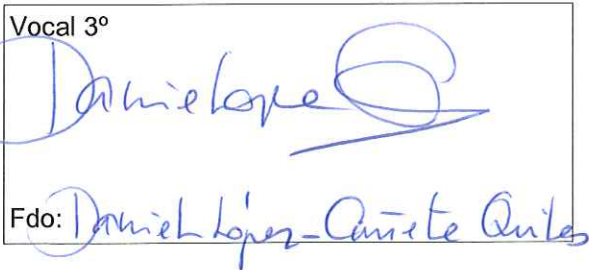 Vocal 3º
Daniel Lope
Fdo: Daniel López-Cañete Quiles